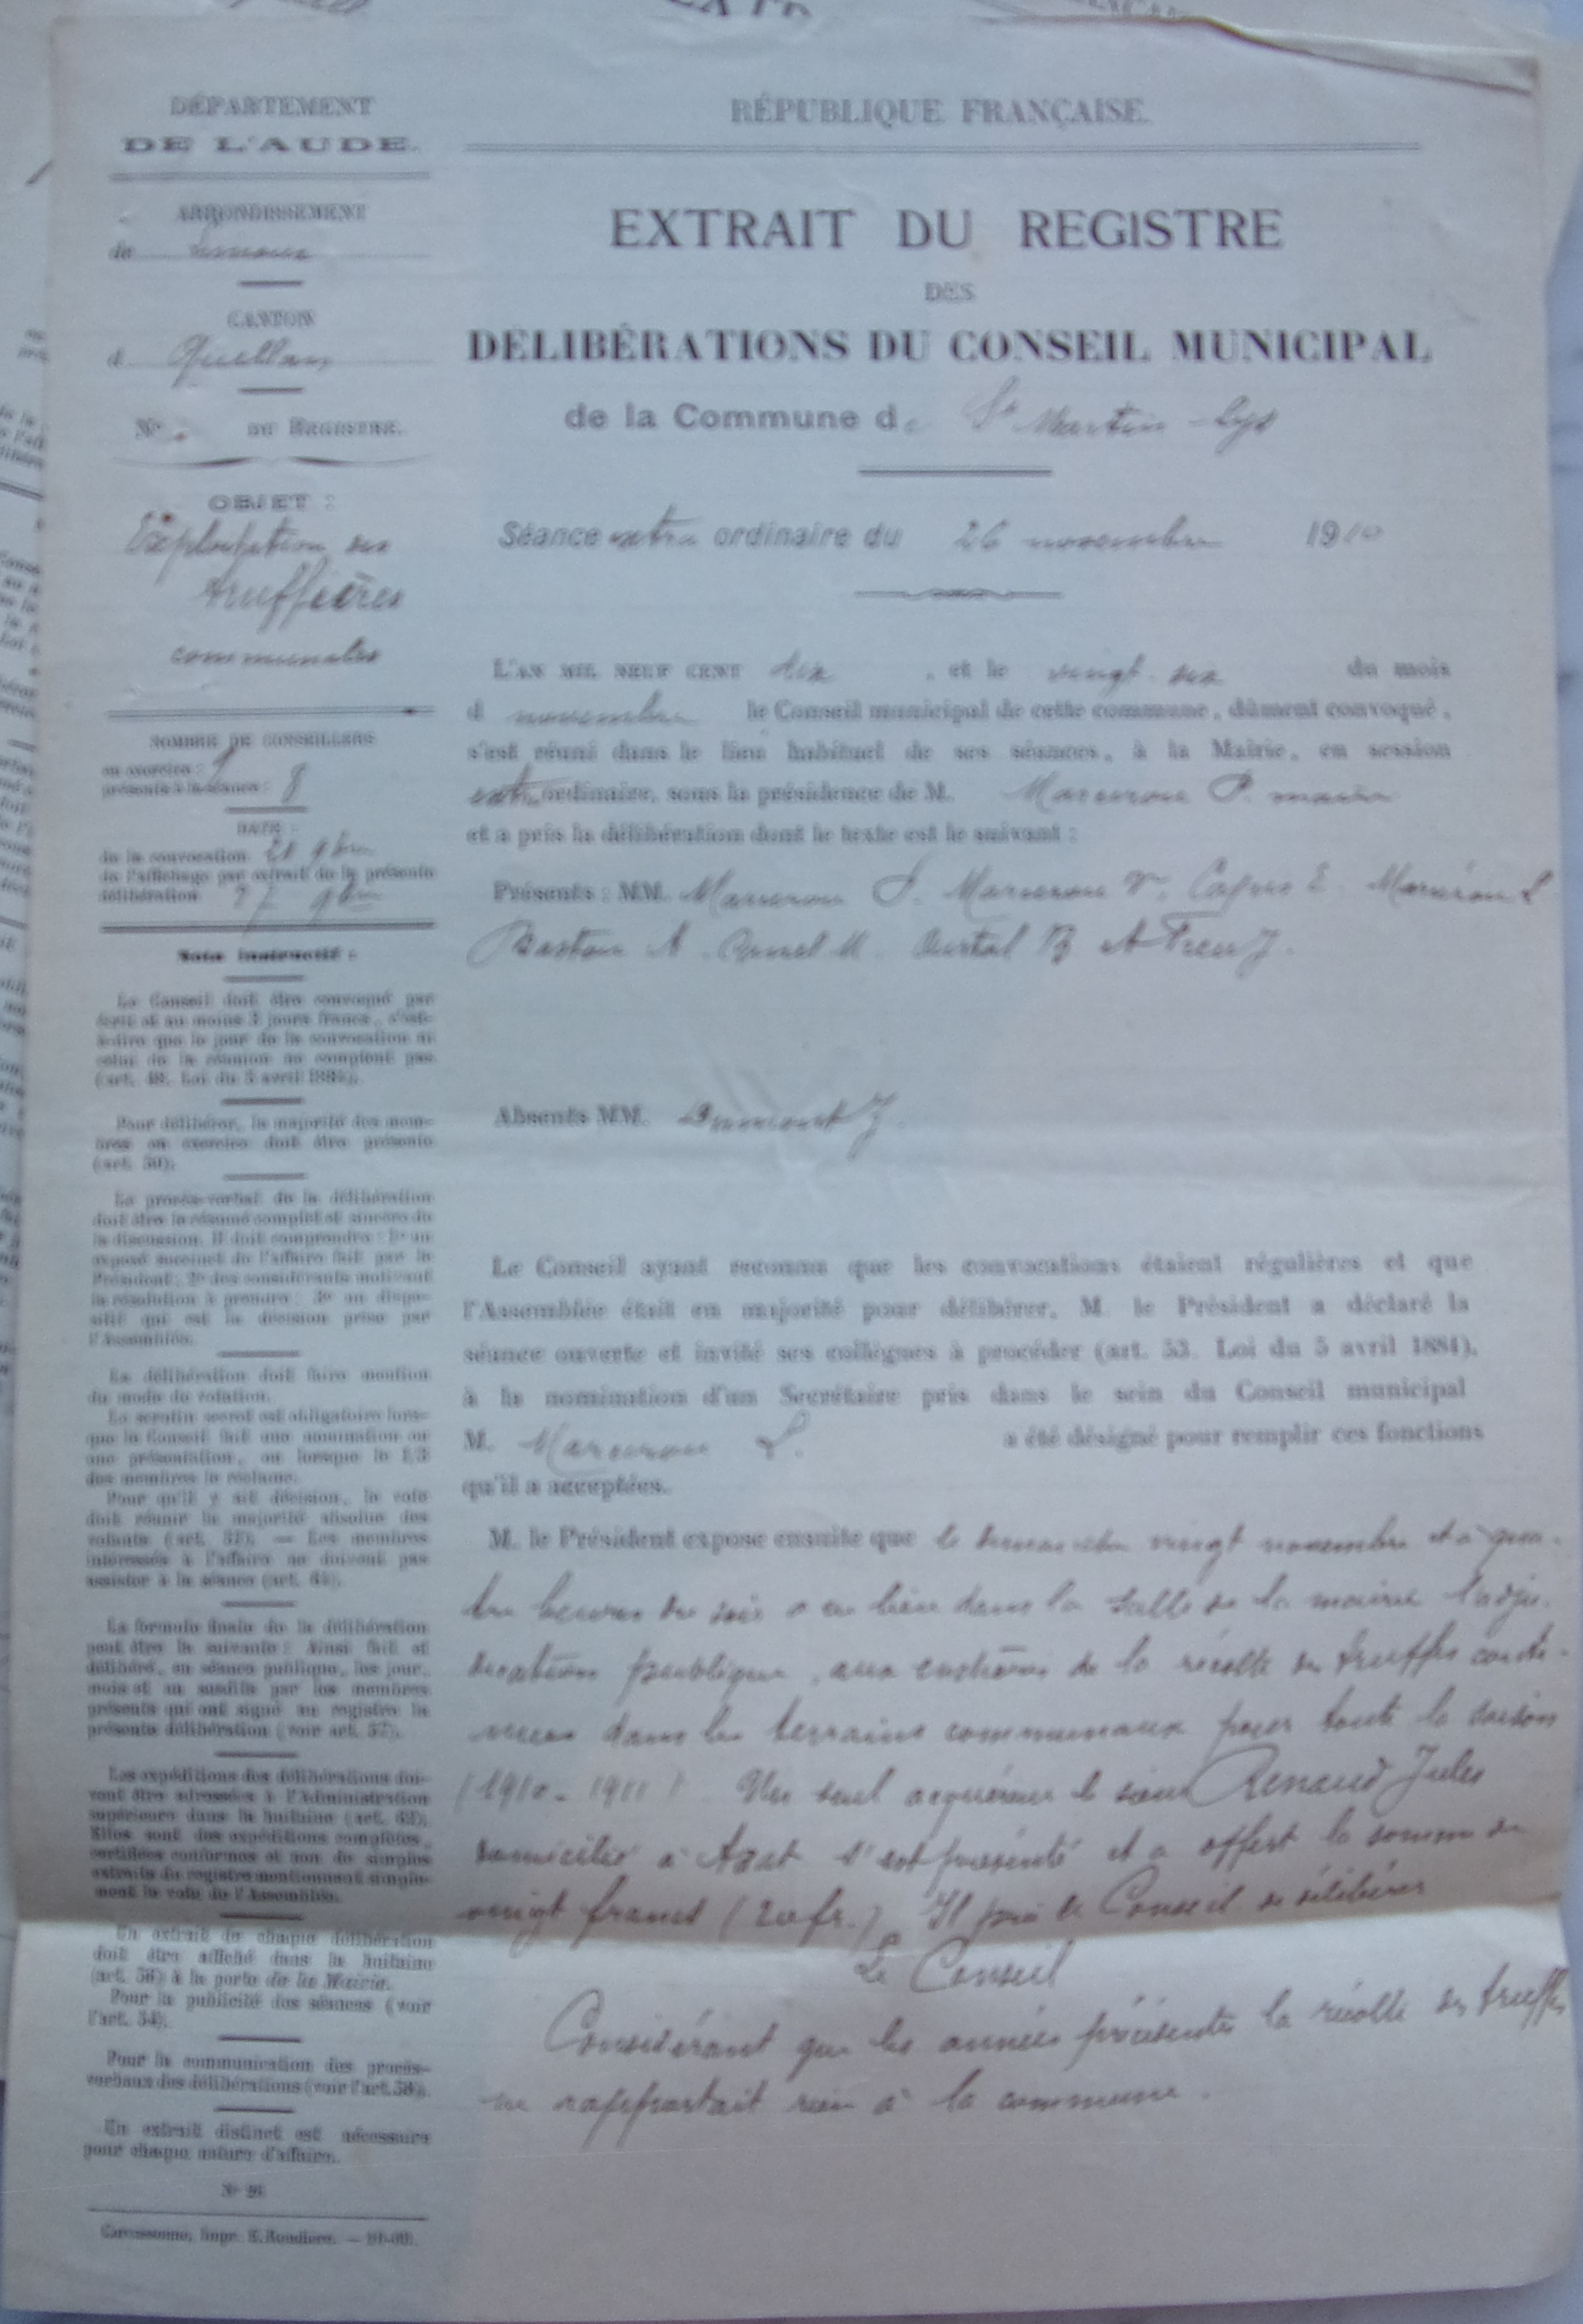 DÉPARTEMENT
DE L'AUDE.
ARRONDISSEMENT
de Limoux
CANTON
d Quillan
N° DU REGISTRE.
OBJET :
Exploitation des
truffières
communales
NOMBRE DE CONSEILLERS
en exercice : 9
présents à la séance : 8
DATE :
de la convocation 21 9bre
de l'affichage par extrait de la présente
délibération 27 9bre
Note instructif :
Le Conseil doit être convoqué par
écrit et au moins 3 jours francs, c'est-
à-dire que le jour de la convocation ni
celui de la réunion ne comptent pas
(art. 48. Loi du 5 avril 1884).
Pour délibérer, la majorité des mem-
bres en exercice doit être présente
(art. 50).
Le procès-verbal de la délibération
doit être le résumé complet et sincère de
la discussion. Il doit comprendre : 1° un
exposé succinct de l'affaire fait par le
Président ; 2° des considérants motivant
la résolution à prendre ; 3° un dispo-
sitif qui est la décision prise par
l'Assemblée.
La délibération doit faire mention
du mode de votation.
Le scrutin secret est obligatoire lors-
que le Conseil fait une nomination ou
une présentation, ou lorsque le 1/3
des membres le réclame.
Pour qu'il y ait décision, le vote
doit réunir la majorité absolue des
votants (art. 51). — Les membres
intéressés à l'affaire ne doivent pas
assister à la séance (art. 64).
La formule finale de la délibération
peut être la suivante : Ainsi fait et
délibéré, en séance publique, les jour,
mois et an susdits par les membres
présents qui ont signé au registre la
présente délibération (voir art. 57).
Les expéditions des délibérations doi-
vent être adressées à l'Administration
supérieure dans la huitaine (art. 62).
Elles sont des expéditions complètes,
certifiées conformes et non de simples
extraits du registre mentionnant simple-
ment le vote de l'Assemblée.
Un extrait de chaque délibération
doit être affiché dans la huitaine
(art. 56) à la porte de la Mairie.
Pour la publicité des séances (voir
l'art. 54).
Pour la communication des procès-
verbaux des délibérations (voir l'art. 58).
Un extrait distinct est nécessaire
pour chaque nature d'affaire.
Carcassonne, Impr.
RÉPUBLIQUE FRANÇAISE.
EXTRAIT DU REGISTRE
DES
DÉLIBÉRATIONS DU CONSEIL MUNICIPAL
de la Commune de St Martin-Lys
Séance extra ordinaire du 26 novembre 1910
L'AN MIL NEUF CENT dix, et le vingt-six du mois
d novembre le Conseil municipal de cette commune, dûment convoqué,
s'est réuni dans le lieu habituel de ses séances, à la Mairie, en session
extra ordinaire, sous la présidence de M. Marcerou P. maire
et a pris la délibération dont le texte est le suivant :
Présents : MM. Marcerou P. Marcerou V. E. Marcerou L
A. M. B et J.
Absents MM. Dumont J.
Le Conseil ayant reconnu que les convocations étaient régulières et que
l'Assemblée était en majorité pour délibérer, M. le Président a déclaré la
séance ouverte et invité ses collègues à procéder (art. 53. Loi du 5 avril 1884),
à la nomination d'un Secrétaire pris dans le sein du Conseil municipal
M. Marcerou L. a été désigné pour remplir ces fonctions
qu'il a acceptées.
M. le Président expose ensuite que le dimanche vingt novembre et à qua-
tre heures du soir a eu lieu dans la salle de la mairie l'adju-
dication publique, aux enchères de la récolte des truffes conte-
nues dans les terrains communaux pour toute la saison
(1910-1911). Un seul acquéreur le sieur Renaud Jules
domicilié à Axat s'est présenté et a offert la somme de
vingt francs (20 fr.). Il prie le Conseil de délibérer
Le Conseil
Considérant que les années précédentes la récolte des truffes
ne rapportait rien à la commune.